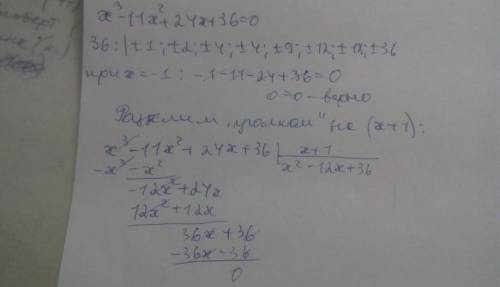 x³-11x²+24x+36=0
36:|±1;±2;±4;±4;±9;±12;±18;±36
при x=-1: -1-11-24+36=0
0=0-верно
Разделим "уголком" на (x+1):
x³-11x²+24x+36 | x+1
-x³-x² x²-12x+36
-12x²+24x
12x²+12x
36x+36
-36x-36
0